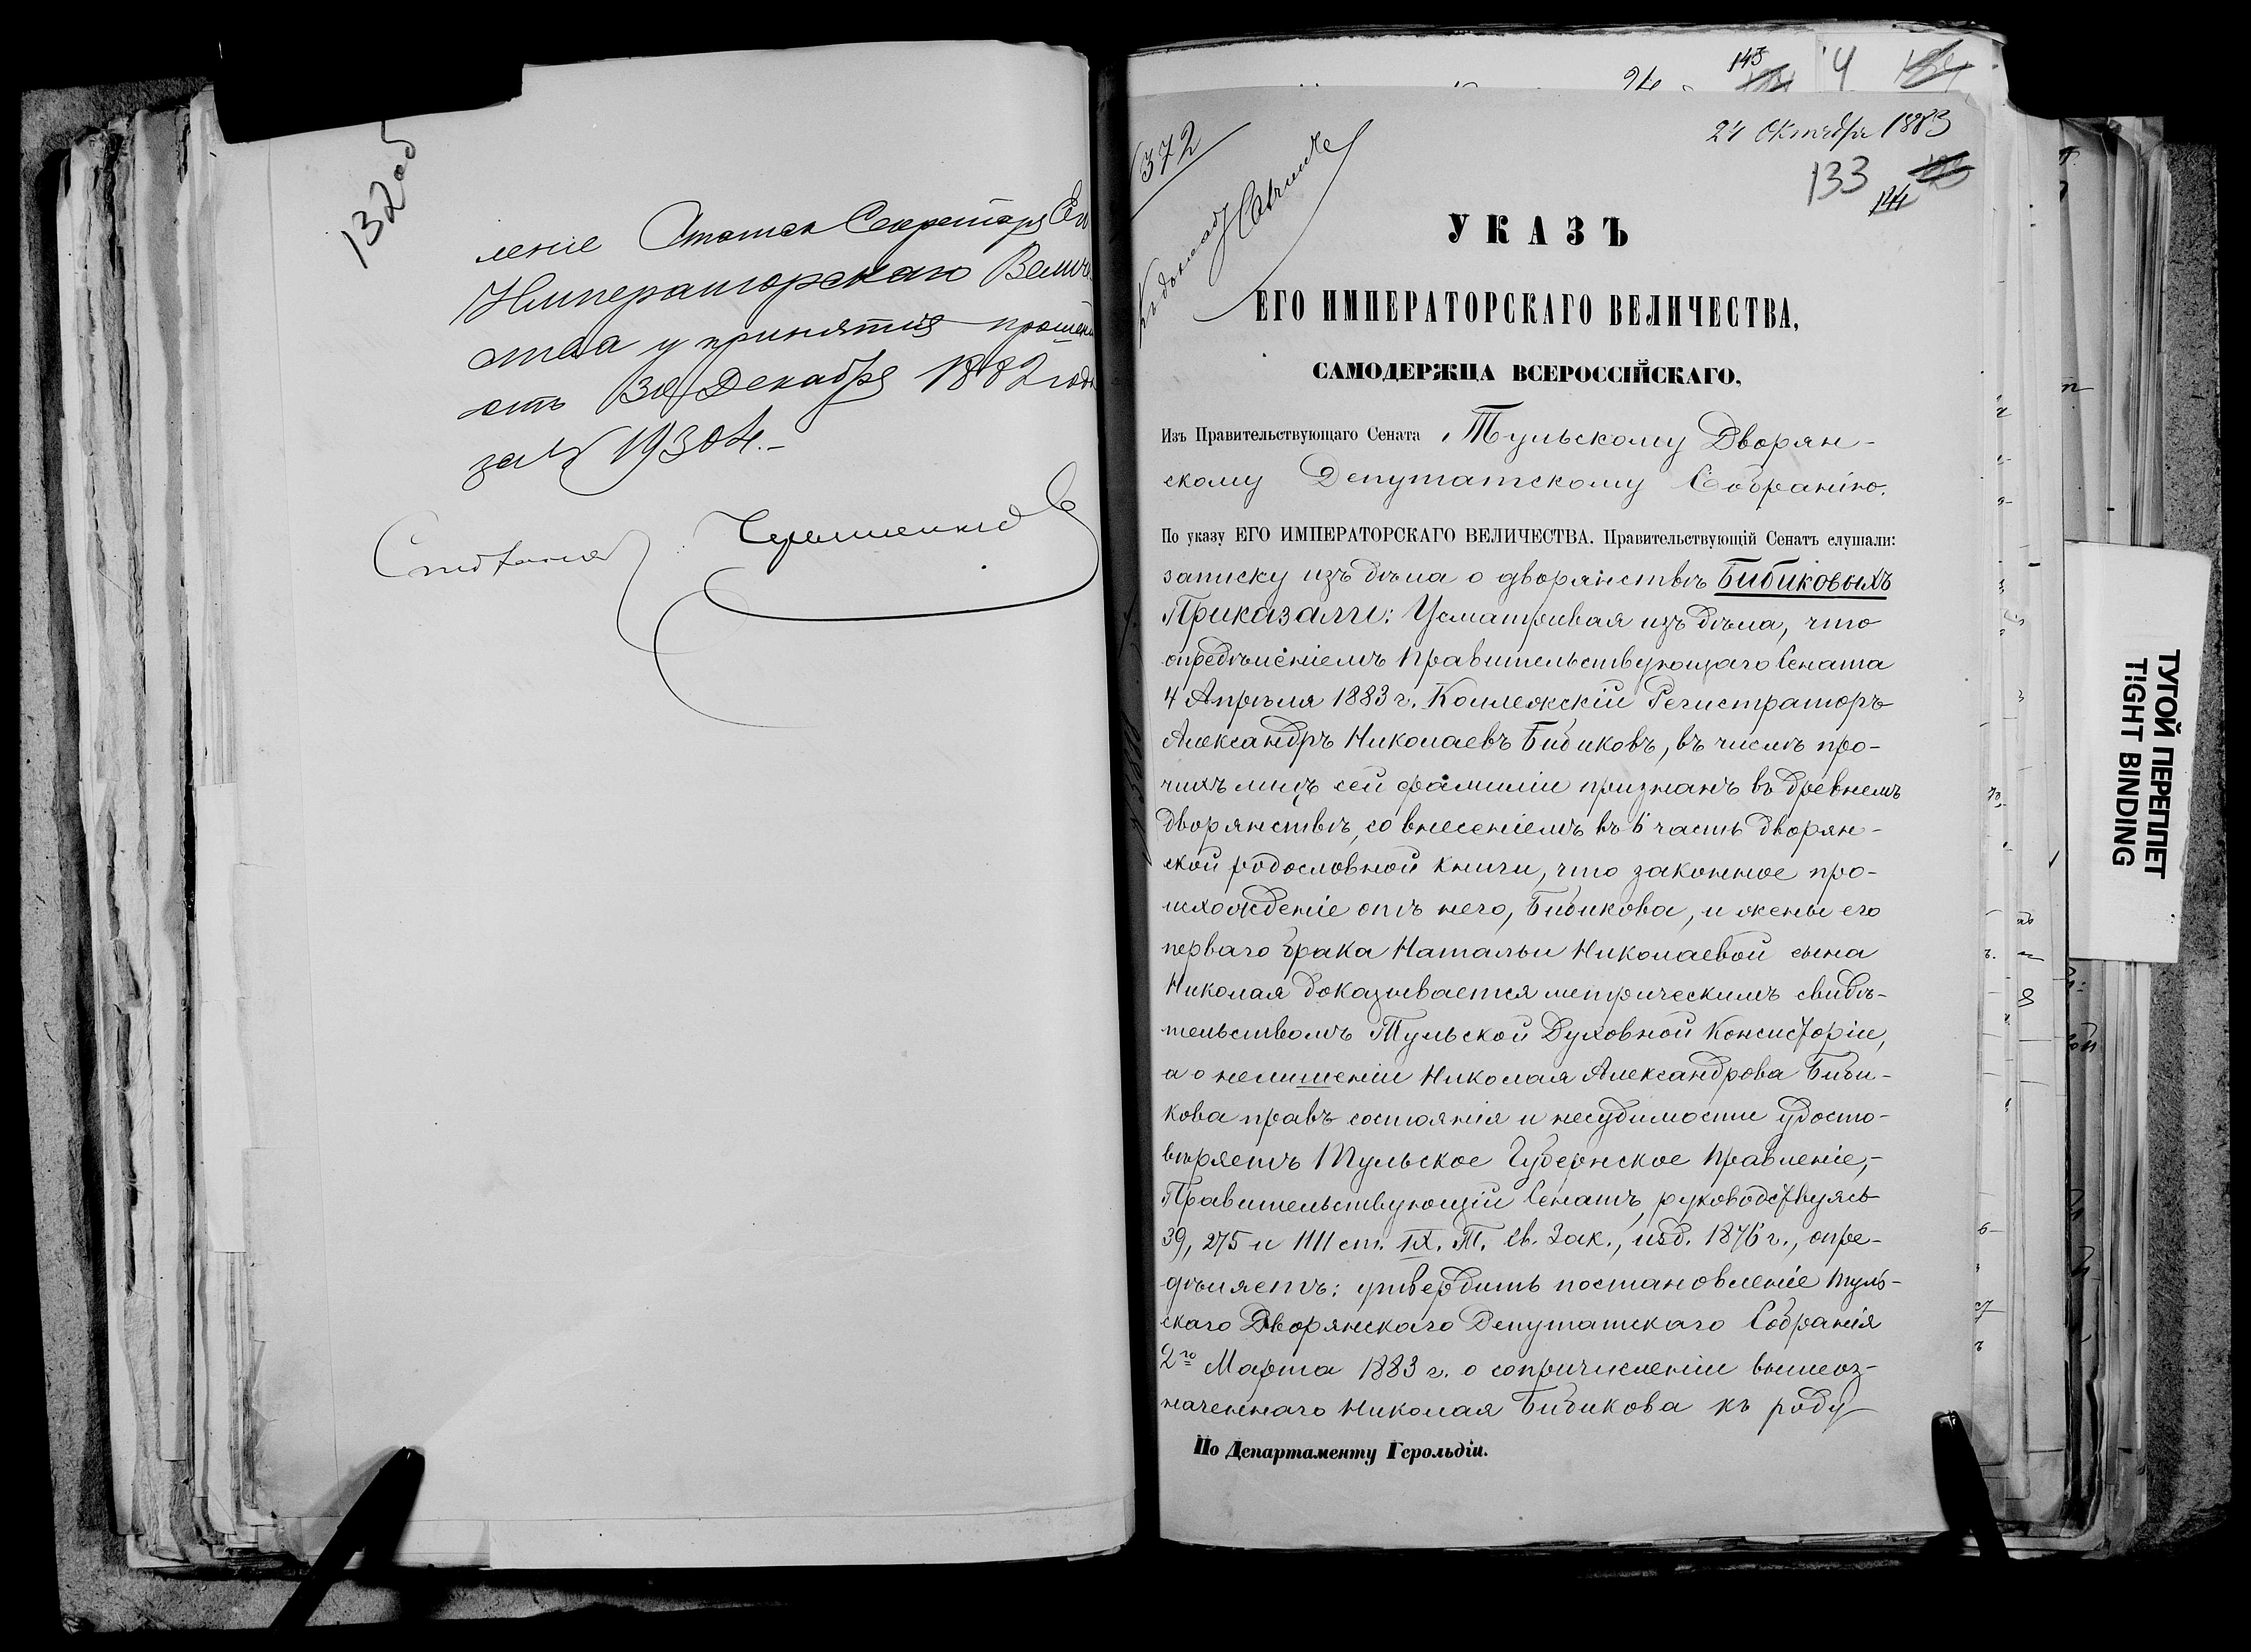 132 об
леніе Статсъ Секретаря Его
Императорскаго Величе
ства у принятія прошен
сть 30 Декабря 1882 года
за № 19304.-
143
4
24 Октября 1883
133
144
372
УКАЗЪ
ЕГО ИМПЕРАТОРСКАГО ВЕЛИЧЕСТВА,
САМОДЕРЖЦА ВСЕРОССІЙСКАГО,
Изъ Правительствующаго Сената, Тульскому Дворян-
скому Депутатскому Собранію.
По указу ЕГО ИМПЕРАТОРСКАГО ВЕЛИЧЕСТВА. Правительствующій Сенатъ слушали:
записку изъ дѣла о дворянствѣ Бибиковыхъ
Приказали: Усматривая изъ дѣла, что
опредѣленіемъ Правительствующаго Сената
4 Апрѣля 1883 г. Коллежскій Регистраторъ
Александръ Николаевъ Бибиковъ, въ числѣ про-
чихъ лицъ сей фамиліи признанъ въ древнемъ
дворянствѣ, со внесеніемъ въ 6 часть дворян-
ской родословной книги, что законное про-
исхожденіе отъ него, Бибикова, и жены его
перваго брака Натальи Николаевой сына
Николая доказывается метрическимъ свидѣ-
тельствомъ Тульской Духовной Консисторіи,
а о нелишеніи Николая Александрова Биби-
кова правъ состоянія и несудимости удосто-
вѣряетъ Тульское Губернское Правленіе,-
Правительствующій Сенатъ, руководствуясь
39, 275 и 1111 ст. IX. Т. Св. Зак., изд. 1876 г., опре-
дѣляетъ: утвердить постановленіе Туль-
скаго Дворянскаго Депутатскаго Собранія
2го Марта 1883 г. о сопричисленіи вышеоз-
наченнаго Николая Бибикова къ роду
По Департаменту Герольдіи.
ТУГОЙ ПЕРЕПЛЕТ
TIGHT BINDING